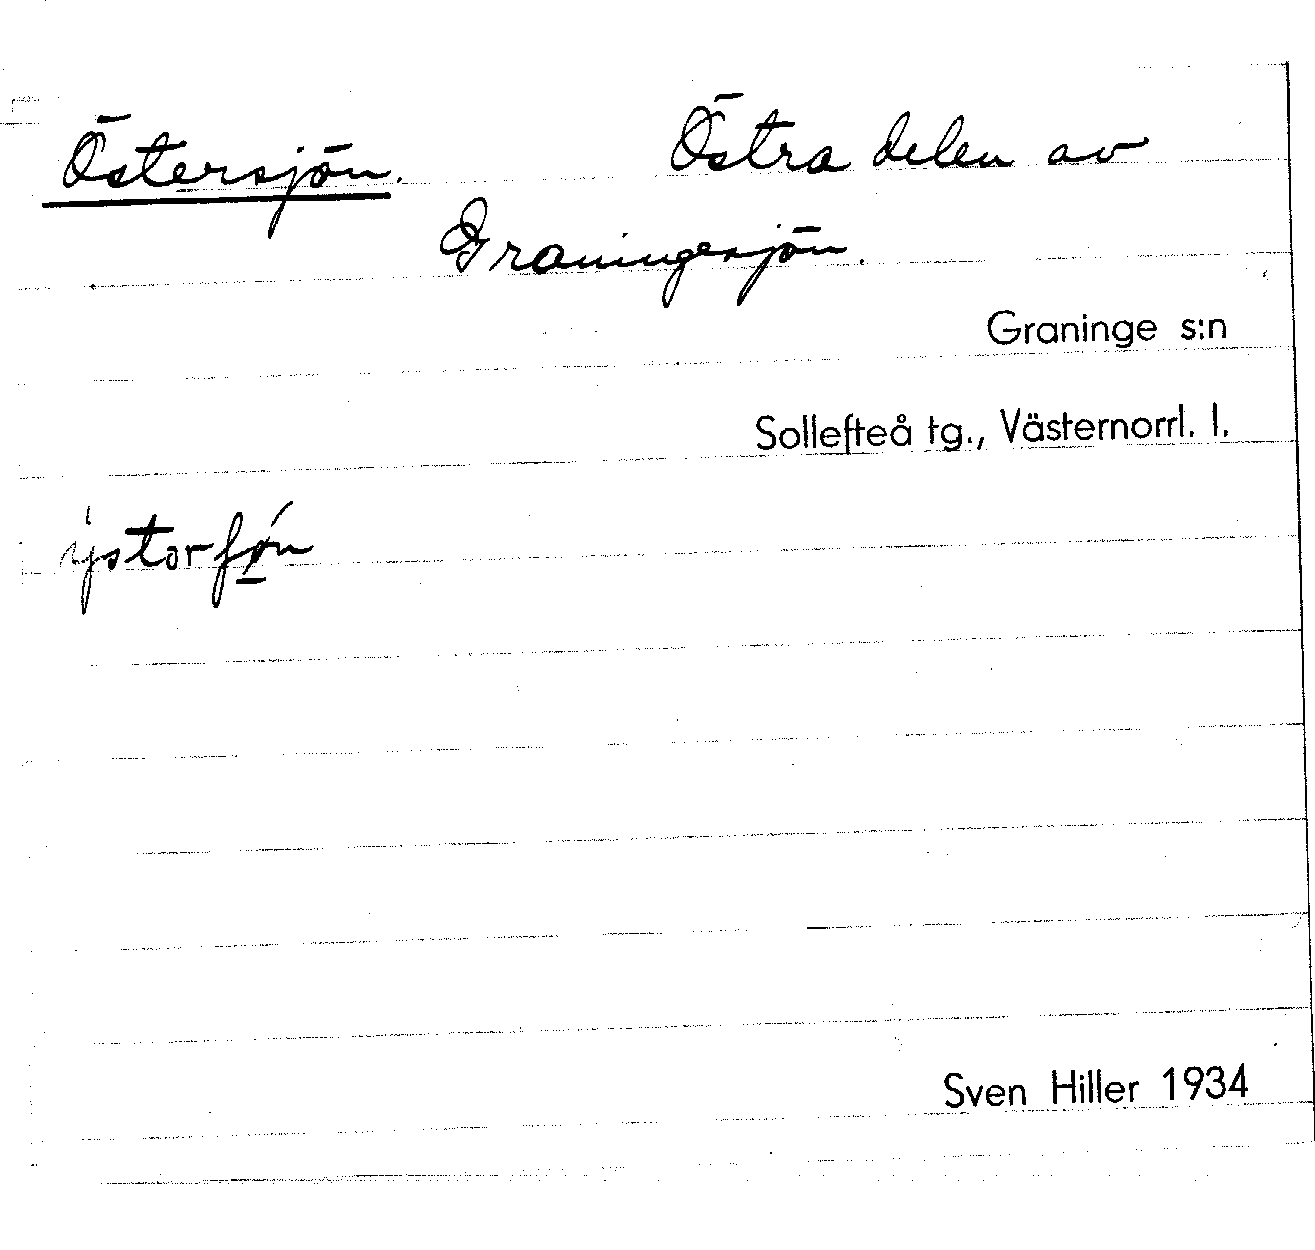 Östersjön. Östra delen av
Graningesjön.
Graninge s:n
Sollefteå tg., Västernorrl. l.
Sven Hiller 1934